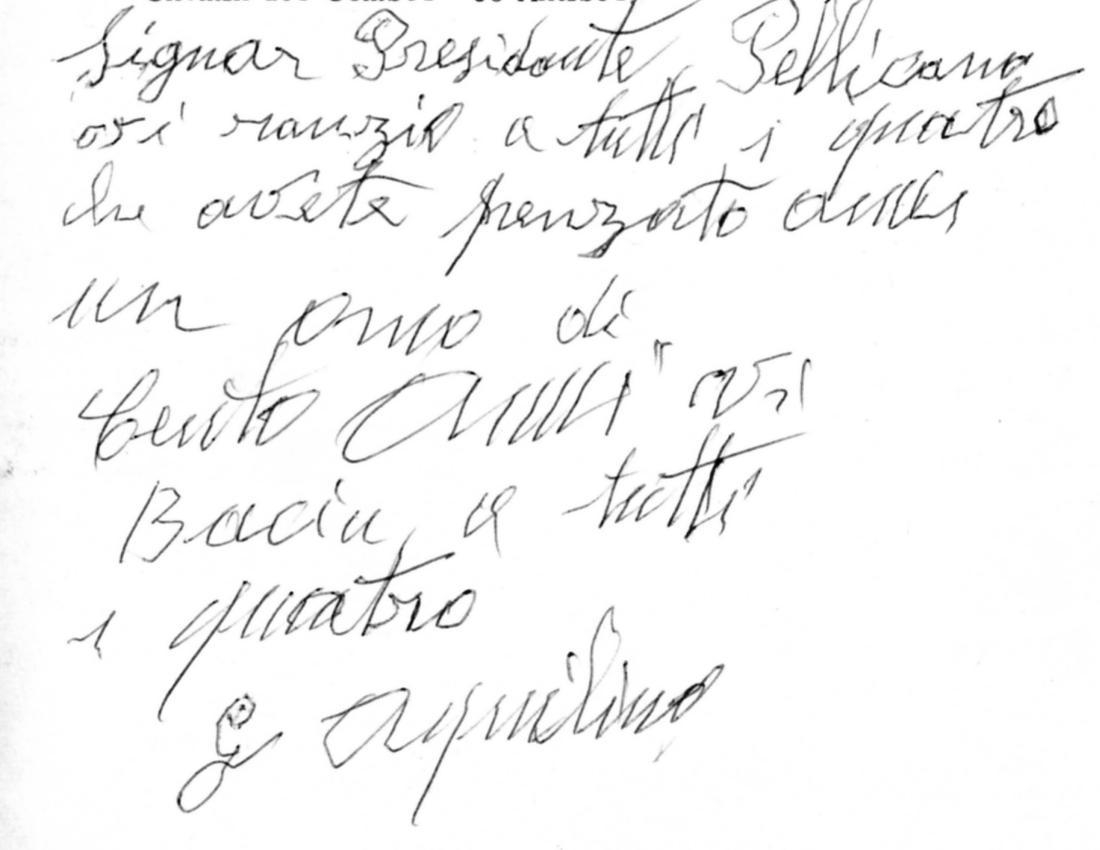 Signor Presidente Pellicano
vi ranzio a tutti i quatro
che avete penzato anni
un omo di
Cento Anni" vi
Baciu a tutti
i quatro
G Aquilino